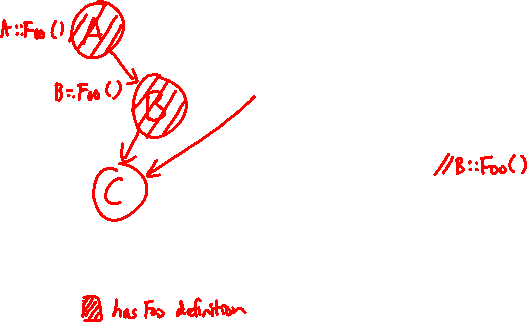 A::Foo()
A
B::Foo()
B
//B::Foo()
C
has Foo definition